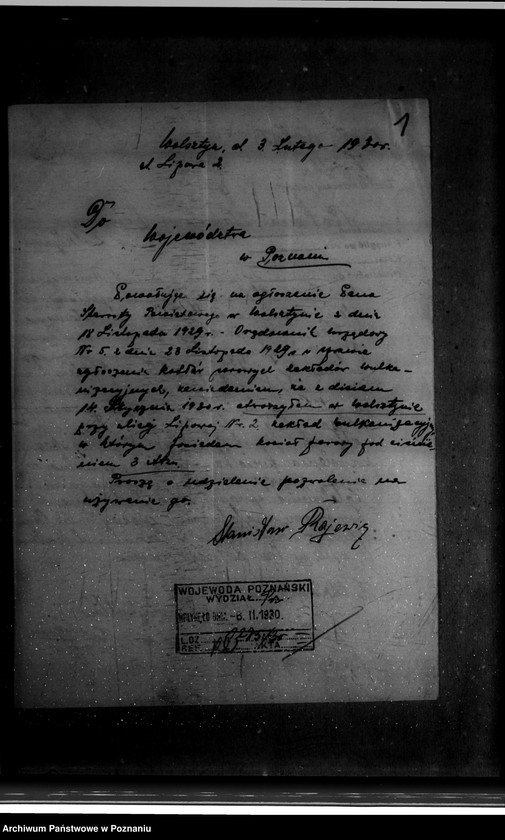 1
Wolsztyn, d. 3. Lutego 1930r.
ul. Lipowa 2.
Do
Województwa
w Poznaniu
Powołując się na ogłoszenie Pana
Starosty Powiatowego w Wolsztynie z dnia
18 Listopada 1929r. - Orędownik urzędowy
Nr 5. z dnia 23 Listopada 1929r. w sprawie
zgłoszenia kotłów parowych zakładów wulka-
nizacyjnych, zawiadamiam, że z dniem
14. Stycznia 1930r. otworzyłem w Wolsztynie
przy ulicy Lipowej Nr. 2. zakład wulkanizacyjny
w którym posiadam kocioł parowy pod ciśnie-
niem 3 Atm.
Proszę o udzielenie pozwolenia na
używanie go.
Stanisław Rajewicz
WOJEWODA POZNAŃSKI
WYDZIAŁ
WPŁYNĘŁO DNIA -8. II. 1930.
L. DZ.
REF. AKTA
Archiwum Państwowe w Poznaniu